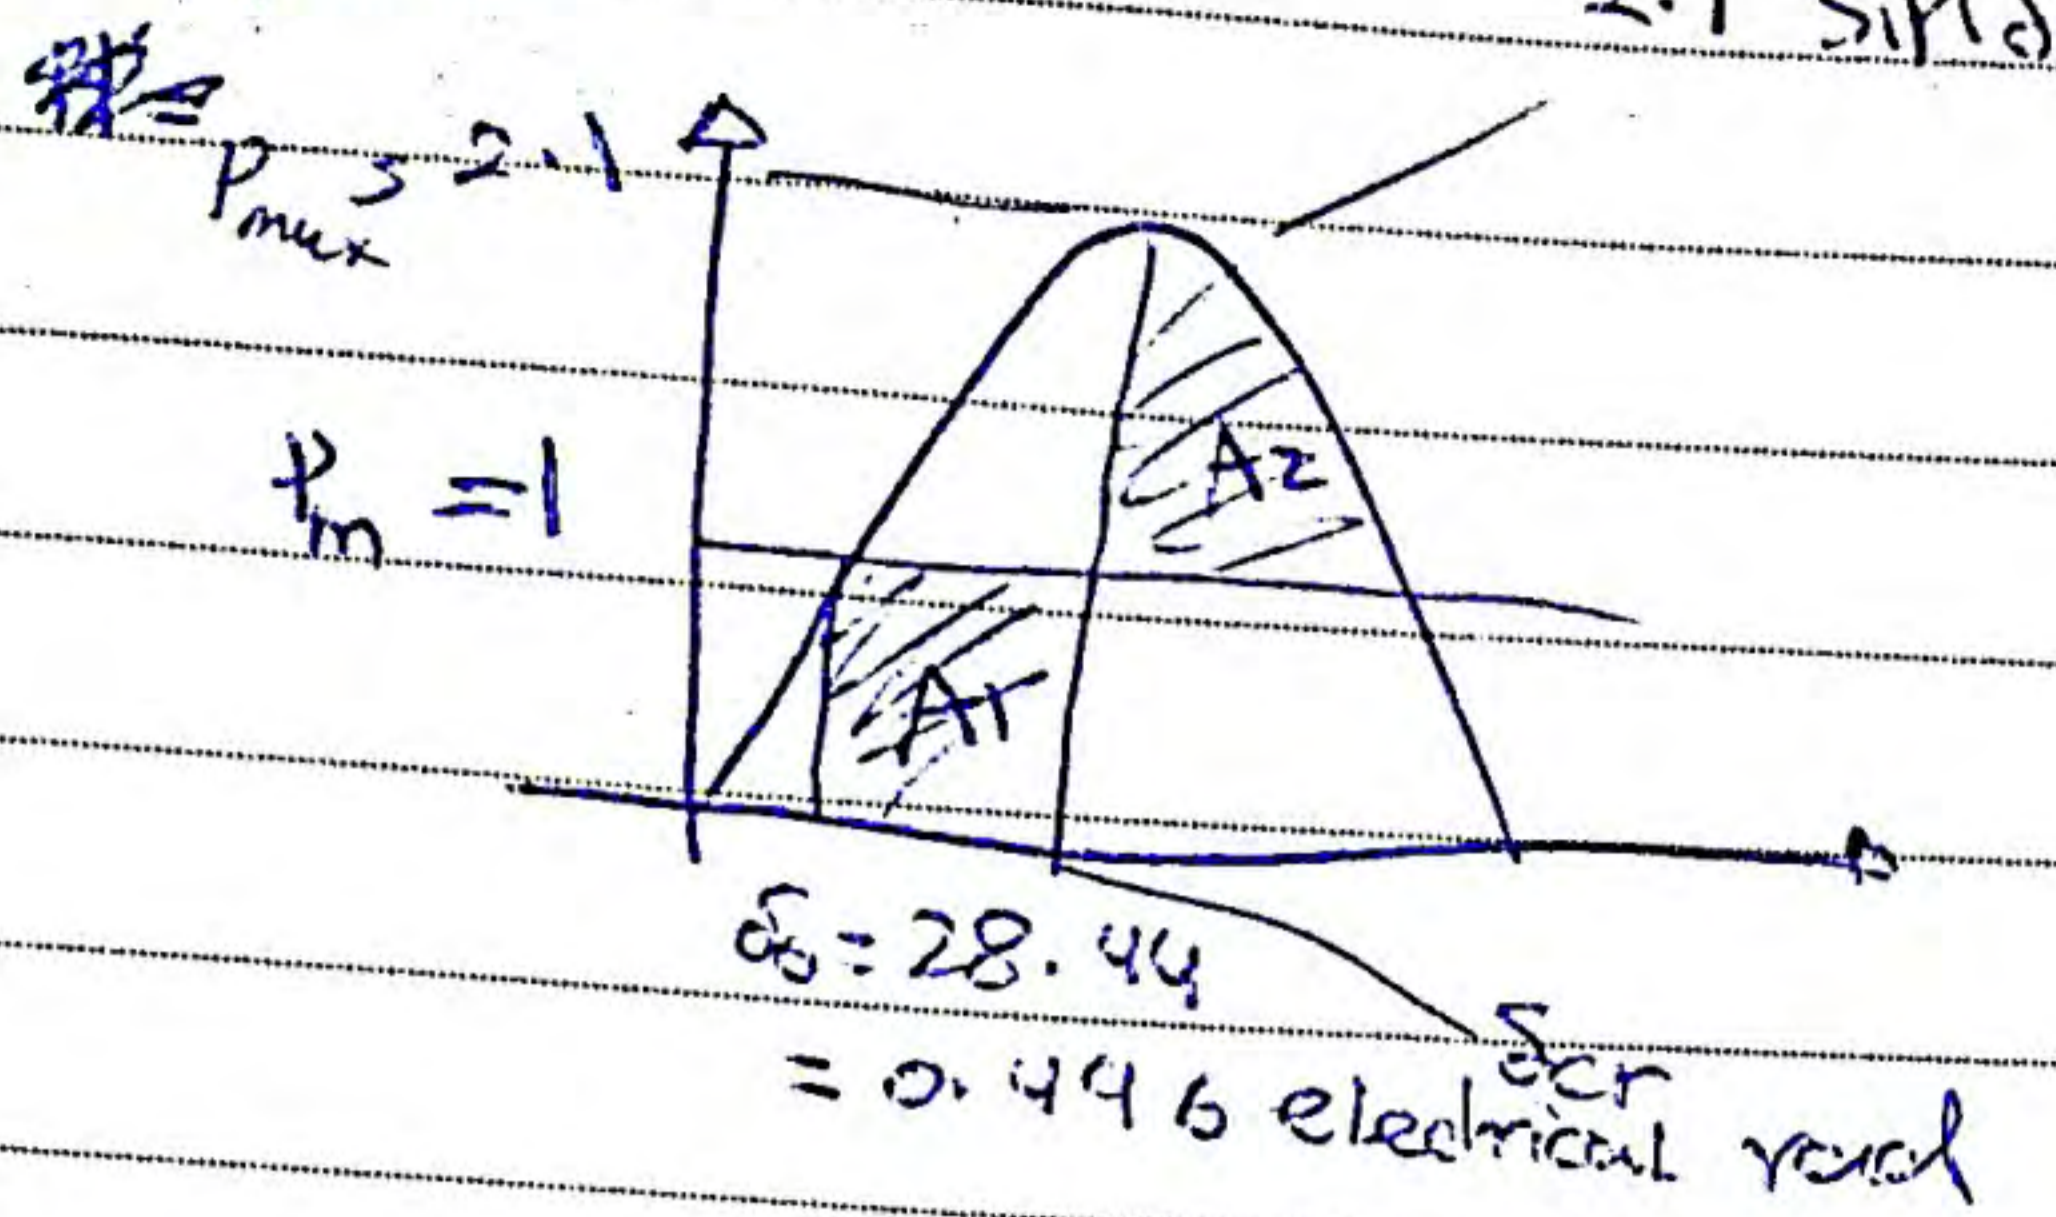 2.1 sin(δ
Pmax = 2.1
Pm = 1
A2
A1
δ0 = 28.44
δcr
= 0.446 electrical rad